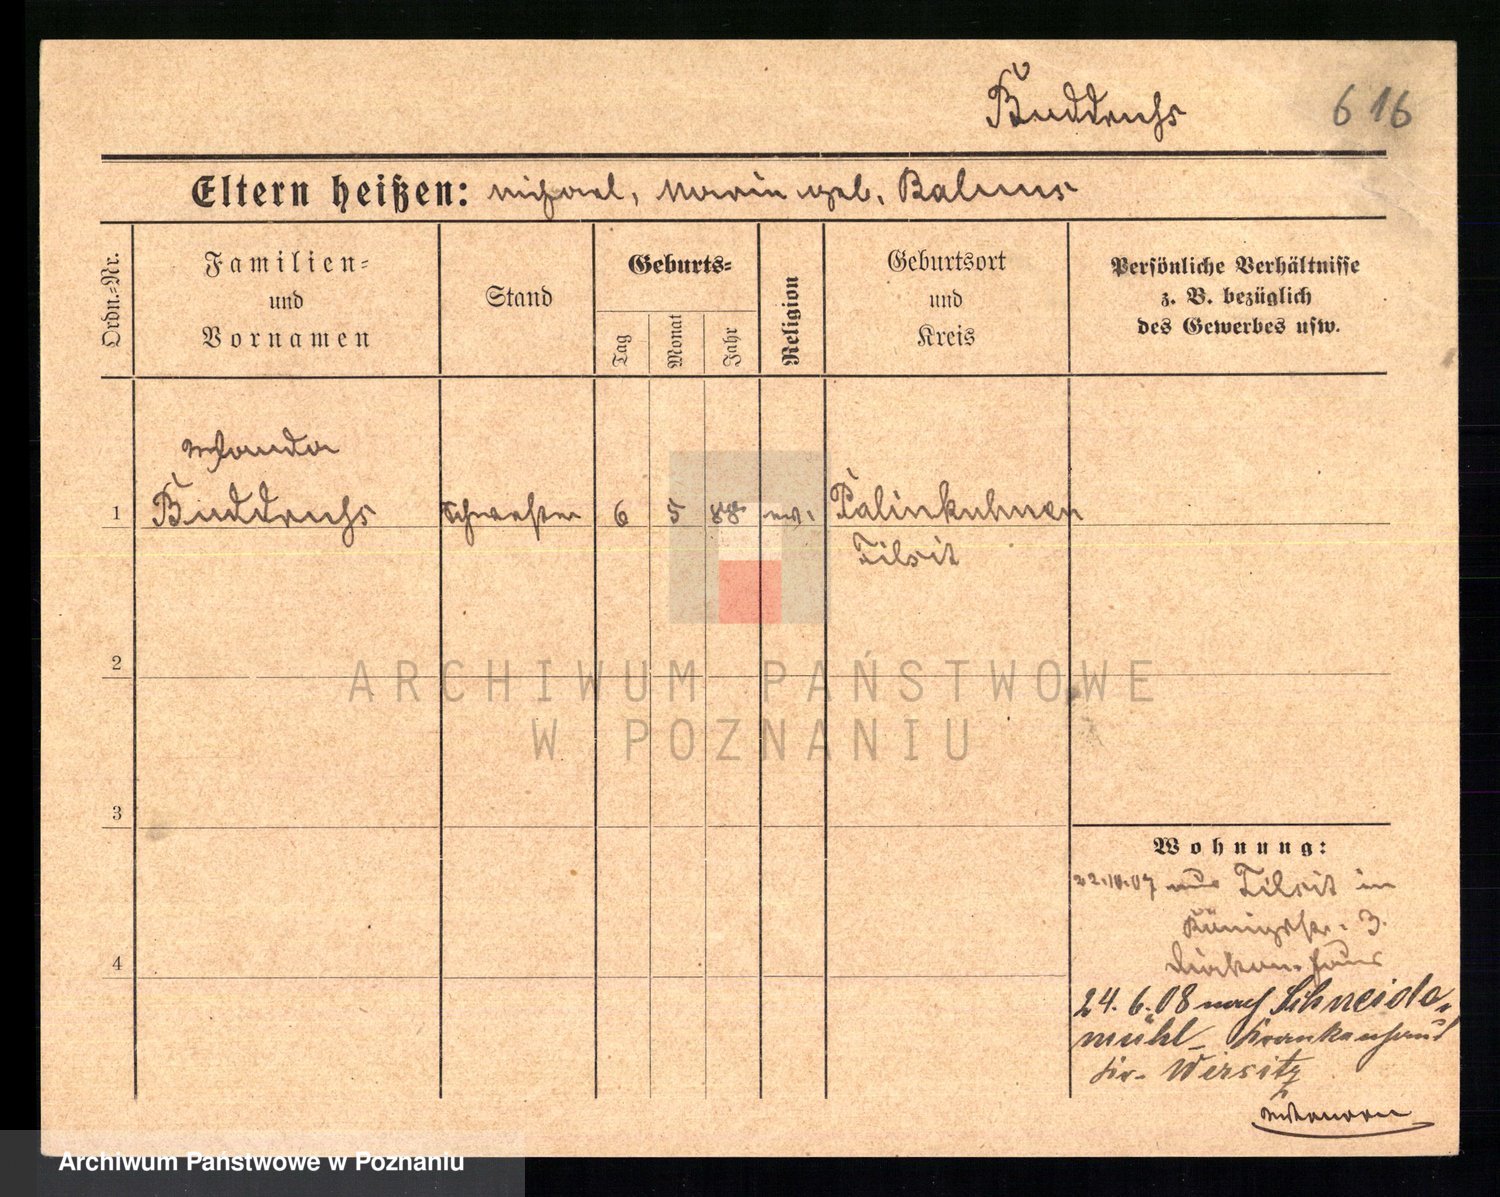 Buddruhs 616
Eltern heißen: Michael, Marie geb. Baluns
Ordn.-Nr.
Familien-
und
Vornamen
Stand
Geburts-
Tag
Monat
Jahr
Religion
Geburtsort
und
Kreis
Persönliche Verhältnisse
z. B. bezüglich
des Gewerbes usw.
Wanda
1 Buddruhs Schwester 6 5 ev. Palinkuhnen
Tilsit
2
3
4
Wohnung:
22.10.07 aus Tilsit in
Königstr. 3.
Diakon. Haus
24.6.08 nach Schneide-
mühl Krankenhaus
Kr. Wirsitz
ARCHIWUM PAŃSTWOWE
W POZNANIU
Archiwum Państwowe w Poznaniu